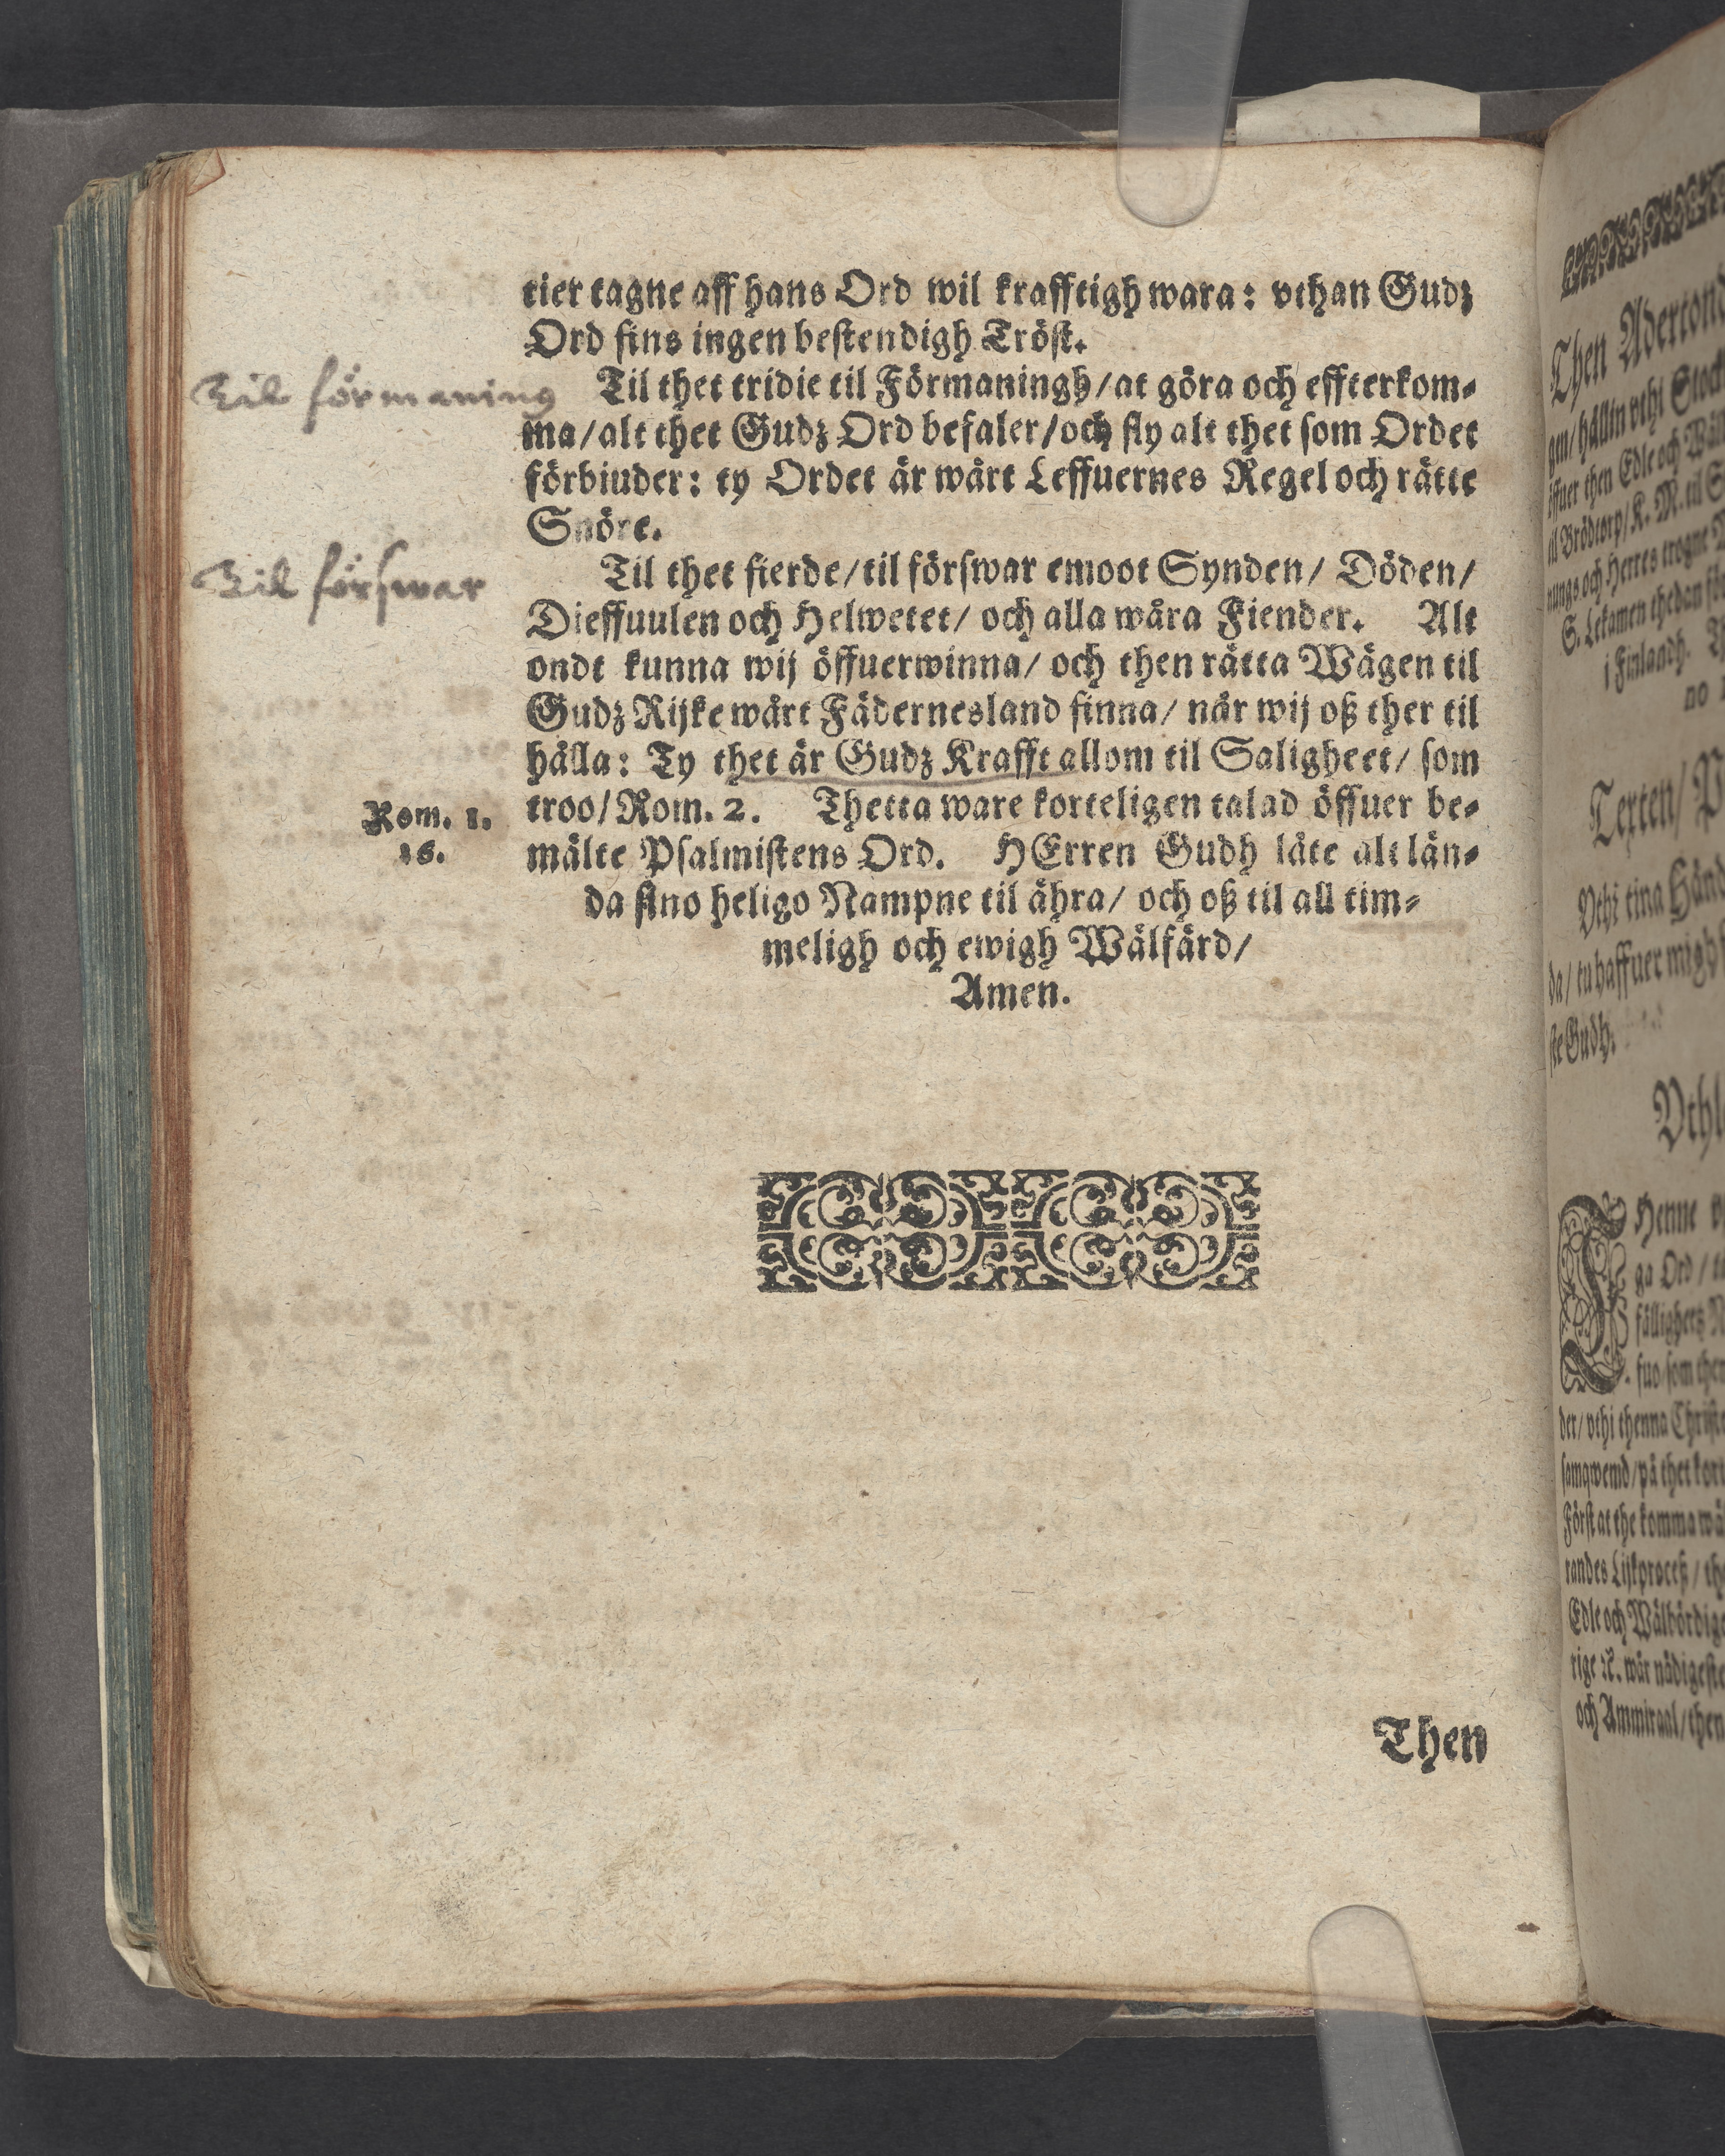 tier tagne aff hans Ord wil krafftigh wara: vthan Gudz
Ord fins ingen bestendigh Tröst.
Til förmaning
Til thet tridie til Förmaningh/at göra och effterkom-
ma/alt thet Gudz Ord befaler/och fly alt thet som Ordet
förbiuder: ty Ordet är wårt Leffuernes Regel och rätte
Snöre.
Til förswar
Til thet fierde/til förswar emoot Synden/ Döden/
Dieffuulen och Helwetet/ och alla wåra Fiender. Alt
ondt kunna wij öffuerwinna/ och then rätta Wägen til
Gudz Rijke wårt Fädernesland finna/ när wij oß ther til
hålla: Ty thet är Gudz Krafft allom til Saligheet/ som
Rom. 1.
16.
troo/Rom. 2. Thetta ware korteligen talad öffuer be-
mälte Psalmistens Ord. HErren Gudh låte alt län-
da sino heligo Nampne til ähra/ och oß til all tim-
meligh och ewigh Wälfärd/
Amen.
Then
Then Adertond
gm/ hållin vthi Stock
öffuer then Edle och Wäl
til Brödtorp/ K. M. til S
nungs och Herres trogne
S. Lekamen thedan för
i Finlandh.
no
Texten/ P
Vthi tina Händ
da/ tu haffuer migh
ste Gudh.
Vthl
THenne
ga Ord/
fälligheetz
fuo/som then
der/vthi thenna Christe
samqwemd/på thet kort
Först at the komma wå
randes Lijkproceß/ th
Edle och Wälbördige
rige R. wår nådigeste
och Ammiraal/then